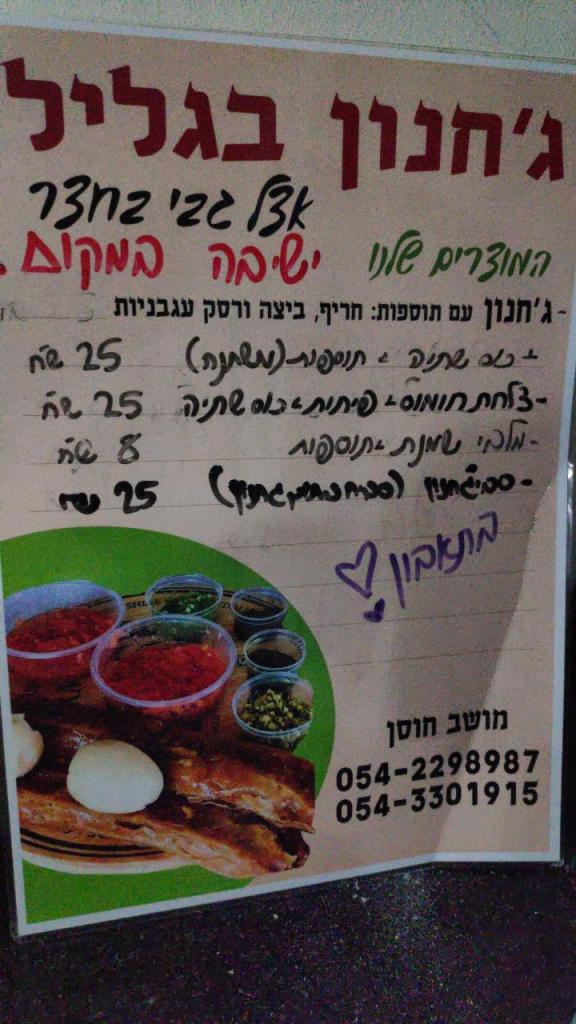 ג'חנון בגליל
אצל גבי בחצר
המוצרים שלנו ישיבה במקום.
- ג'חנון עם תוספות: חריף, ביצה ורסק עגבניות
+ כוס שתיה + תוספות (משתנה) 25 ש"ח
- צלחת חומוס + פיתית + כוס שתיה 25 ש"ח
- מלבי שמנת + תוספות 8 ש"ח
- סביגחנון 25 ש"ח
בתאבון
מושב חוסן
054-2298987
054-3301915